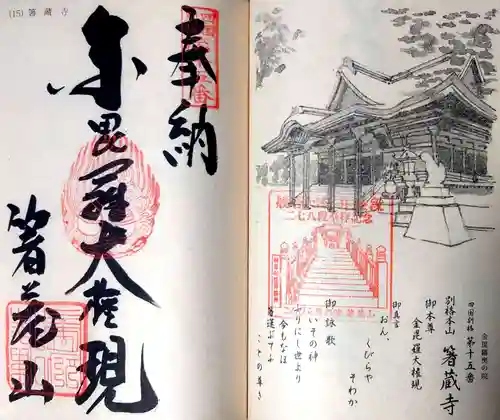 (15) 箸蔵寺
奉納
金毘羅大権現
箸蔵山
金毘羅奥の院
四国別格 第十五番
別格本山 箸蔵寺
御本尊 金毘羅大権現
御真言
おん、くびらや
そわか
御詠歌
いその神
ふりにし世より
今もなほ
箸運ぶてふ
ことの尊き
二七八段奉行記念